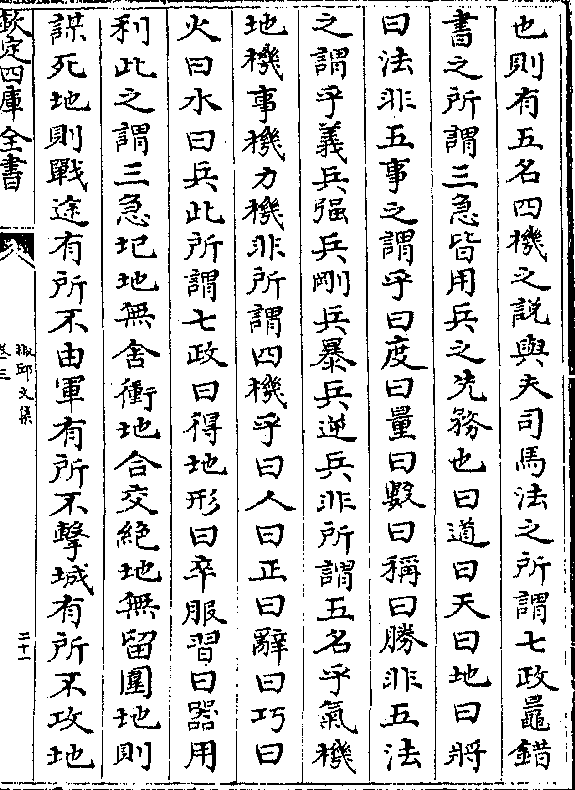 也則有五名四機之説與夫司馬法之所謂七政鼂錯
書之所謂三急皆用兵之先務也曰道曰天曰地曰將
曰法非五事之謂乎曰度曰量曰數曰稱曰勝非五法
之謂乎義兵强兵剛兵暴兵逆兵非所謂五名乎氣機
地機事機力機非所謂四機乎曰人曰正曰辭曰巧曰
火曰水曰兵此所謂七政曰得地形曰卒服習曰器用
利此之謂三急圮地無舍衢地合交絶地無留圍地則
謀死地則戰途有所不由軍有所不擊城有所不攻地
欽定四庫全書
卷三
二十一